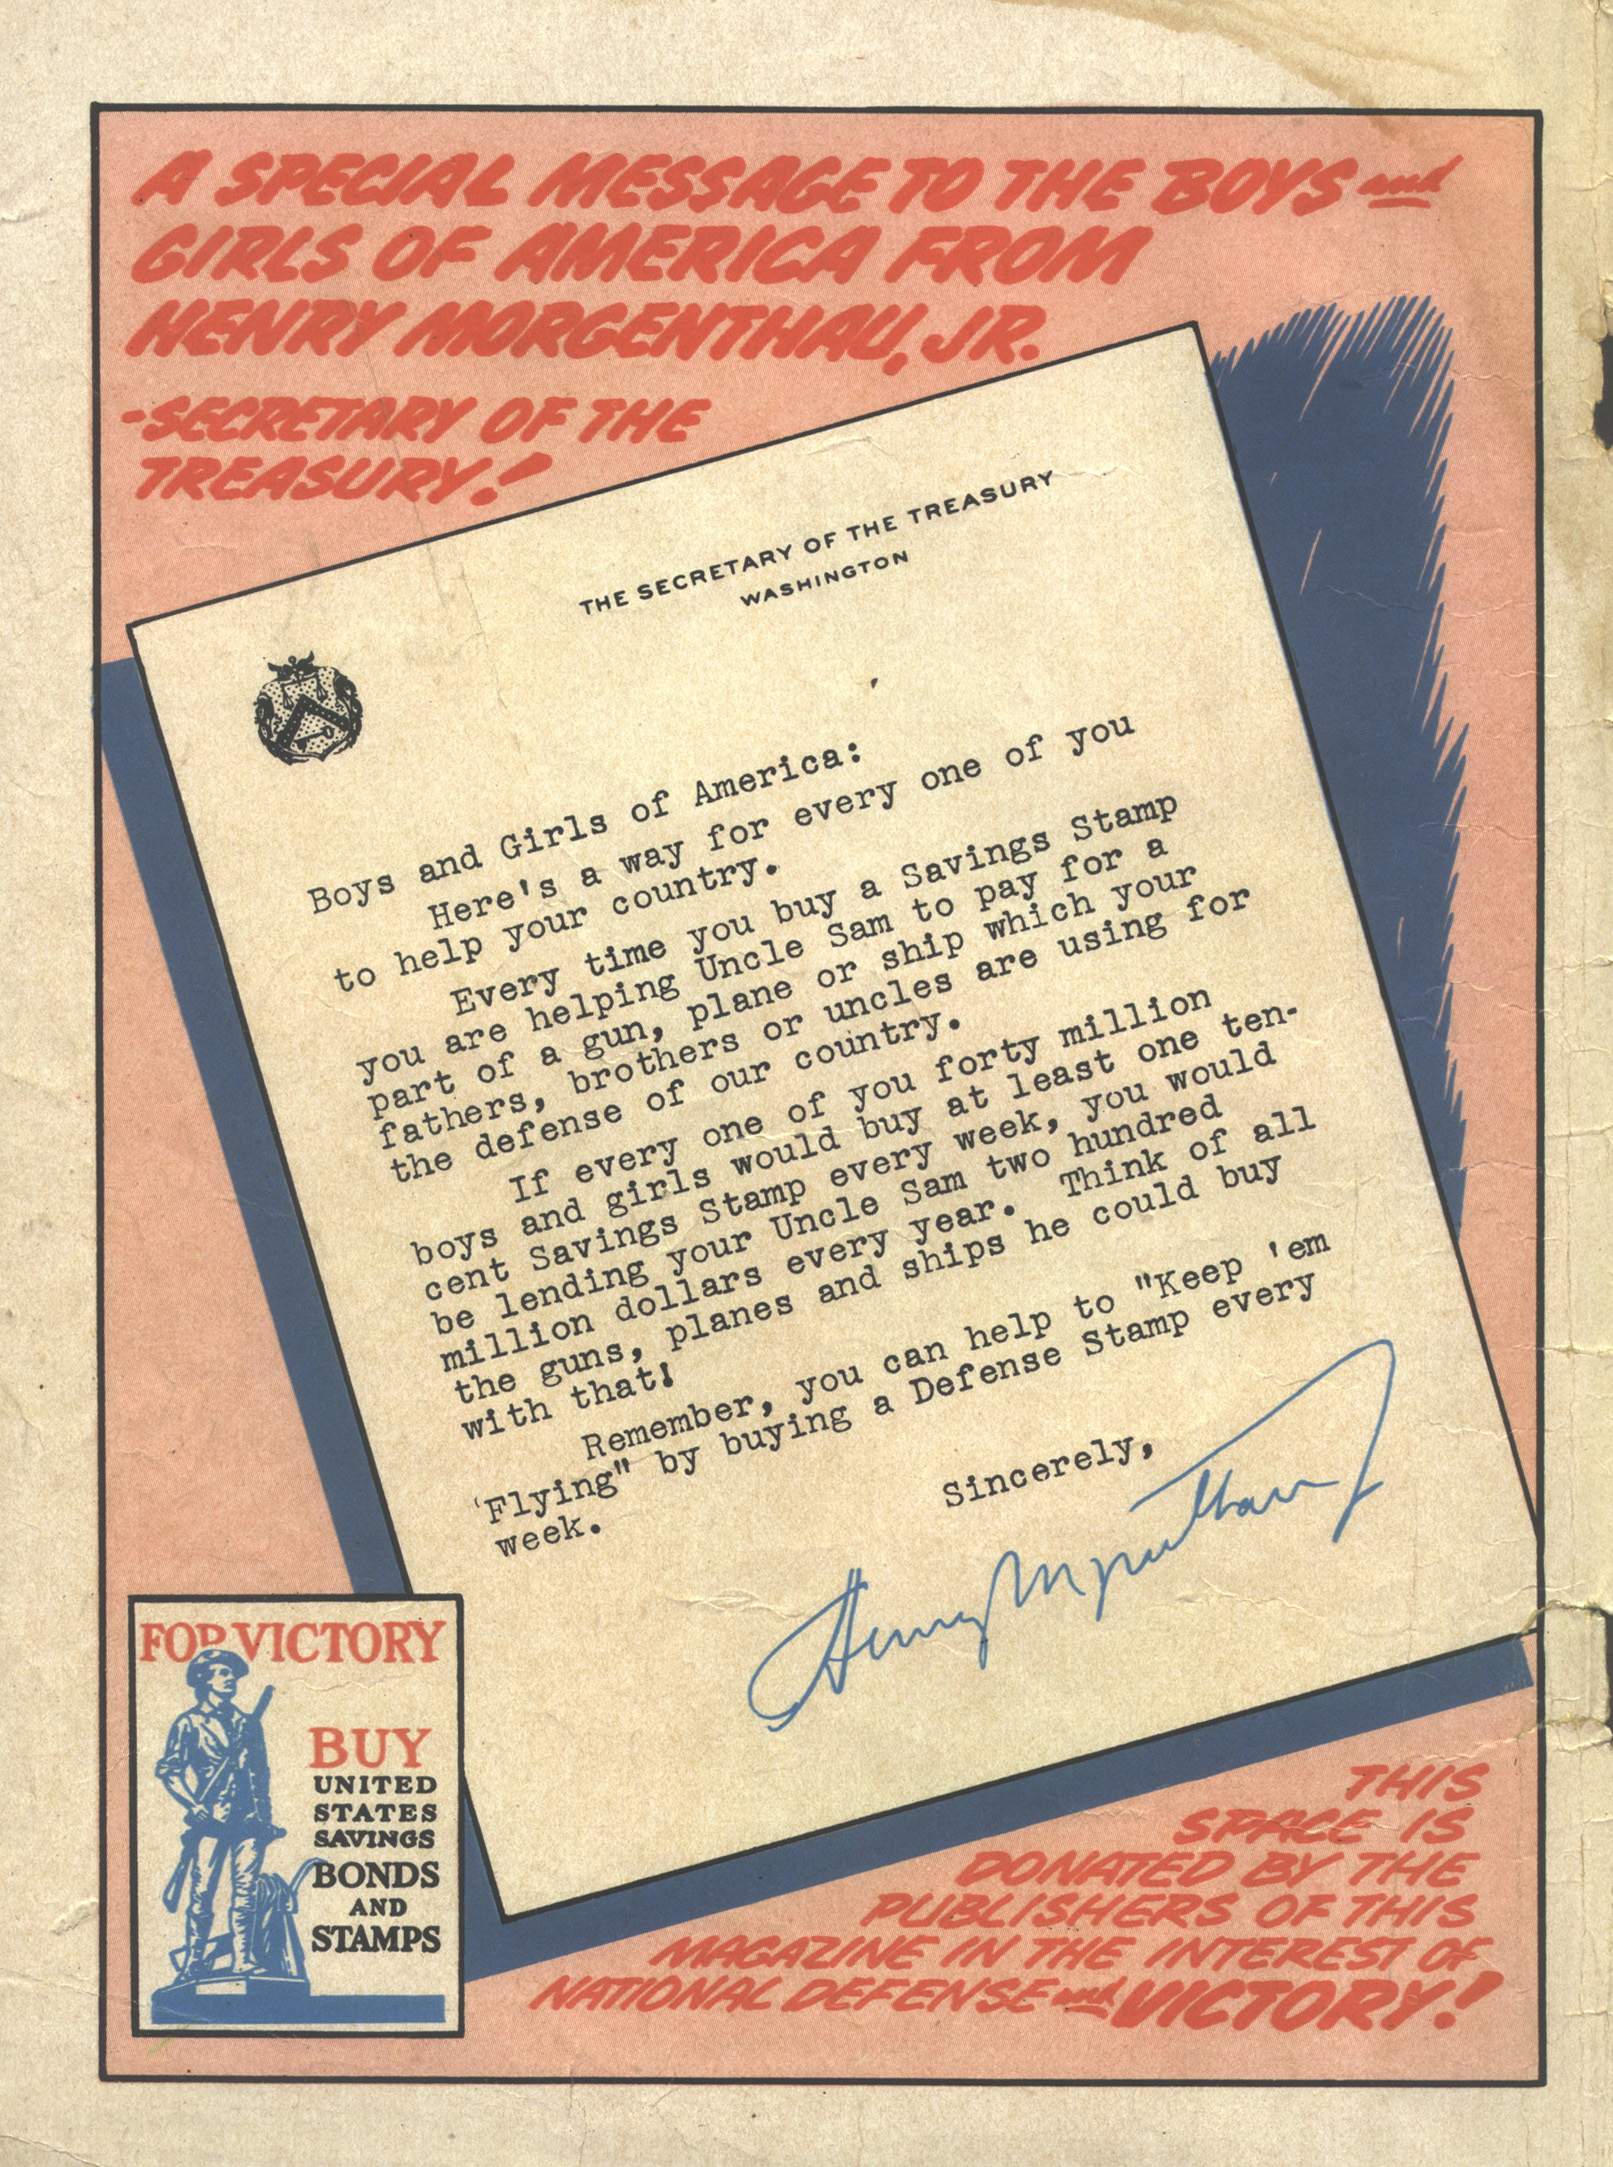 A SPECIAL MESSAGE TO THE BOYS and
GIRLS OF AMERICA FROM
HENRY MORGENTHAU, JR.
-SECRETARY OF THE
TREASURY!
THE SECRETARY OF THE TREASURY
WASHINGTON
Boys and Girls of America:
Here's a way for every one of you
to help your country.
Every time you buy a Savings Stamp
you are helping Uncle Sam to pay for a
part of a gun, plane or ship which your
fathers, brothers or uncles are using for
the defense of our country.
If every one of you forty million
boys and girls would buy at least one ten-
cent Savings Stamp every week, you would
be lending your Uncle Sam two hundred
million dollars every year. Think of all
the guns, planes and ships he could buy
with that!
Remember, you can help to "Keep 'em
'Flying" by buying a Defense Stamp every
week.
Sincerely,
Henry Morgenthau Jr
FOR VICTORY
BUY
UNITED
STATES
SAVINGS
BONDS
AND
STAMPS
THIS
SPACE IS
DONATED BY THE
PUBLISHERS OF THIS
MAGAZINE IN THE INTEREST OF
NATIONAL DEFENSE and VICTORY!